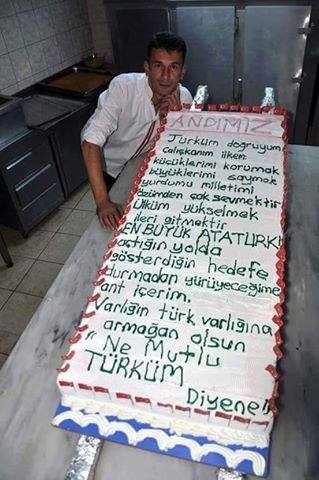 ANDIMIZ
Türküm doğruyum
Çalışkanım ilkem;
küçüklerimi korumak
büyüklerimi saymak
yurdumu milletimi
özümden çok sevmektir
ülküm yükselmek
ileri gitmektir
EN BÜYÜK ATATÜRK!
açtığın yolda
gösterdiğin hedefe
durmadan yürüyeceğime
ant içerim.
Varlığım türk varlığına
armağan olsun
" Ne Mutlu
TÜRKÜM
Diyene!"